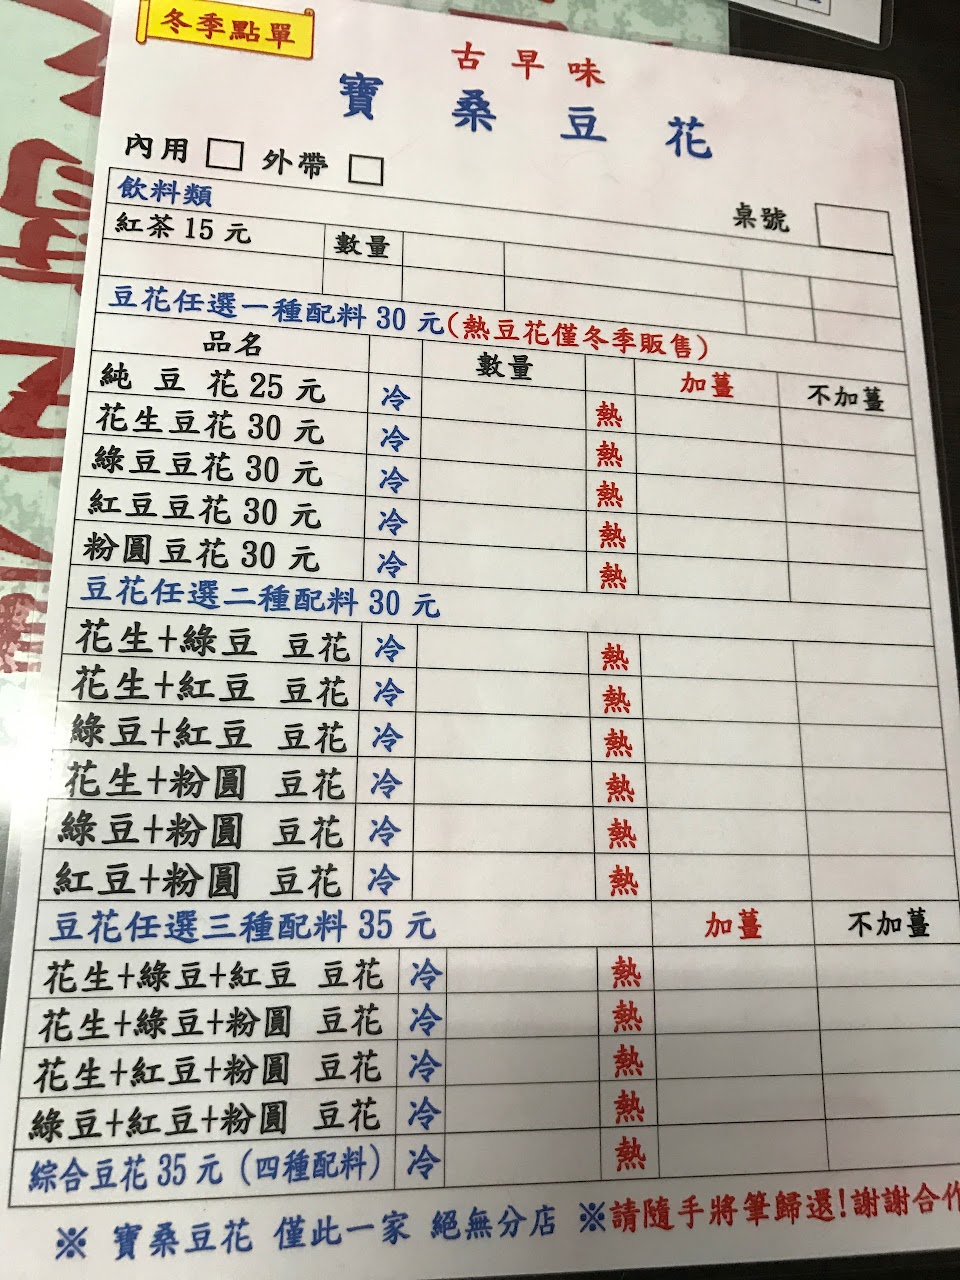 冬季點單
古早味
寶桑豆花
內用 外帶
桌號
飲料類
紅茶15元 數量
豆花任選一種配料30元(熱豆花僅冬季販售)
品名 數量 加薑 不加薑
純豆花25元 冷 熱
花生豆花30元 冷 熱
綠豆豆花30元 冷 熱
紅豆豆花30元 冷 熱
粉圓豆花30元 冷 熱
豆花任選二種配料30元
花生+綠豆 豆花 冷 熱
花生+紅豆 豆花 冷 熱
綠豆+紅豆 豆花 冷 熱
花生+粉圓 豆花 冷 熱
綠豆+粉圓 豆花 冷 熱
紅豆+粉圓 豆花 冷 熱
豆花任選三種配料35元 加薑 不加薑
花生+綠豆+紅豆 豆花 冷 熱
花生+綠豆+粉圓 豆花 冷 熱
花生+紅豆+粉圓 豆花 冷 熱
綠豆+紅豆+粉圓 豆花 冷 熱
綜合豆花35元(四種配料) 冷 熱
※ 寶桑豆花 僅此一家 絕無分店 ※請隨手將筆歸還!謝謝合作